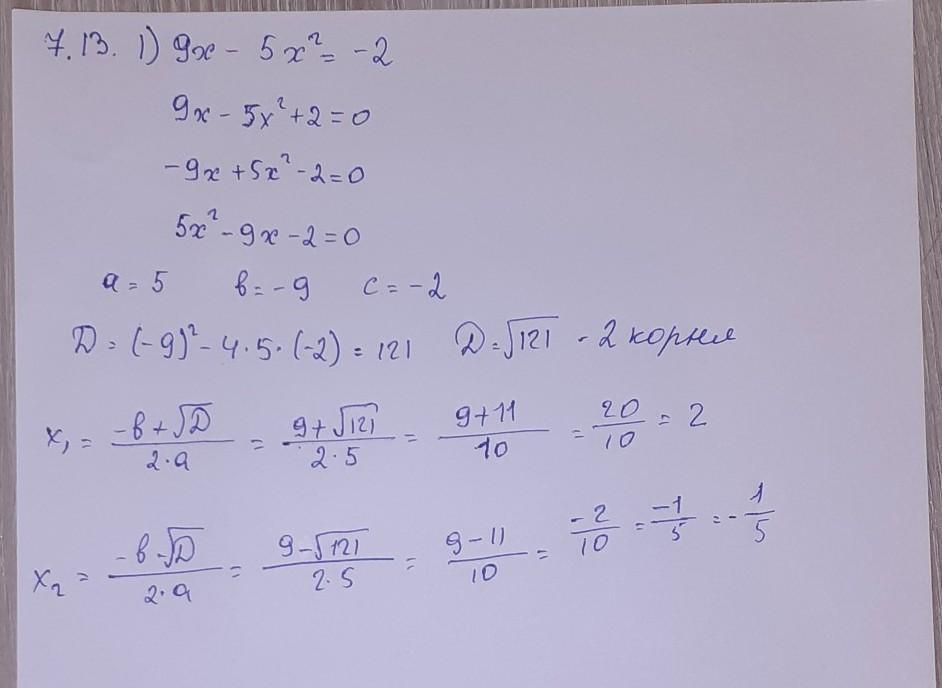 7.13. 1) 9x - 5x² = -2
9x - 5x² + 2 = 0
-9x + 5x² - 2 = 0
5x² - 9x - 2 = 0
a = 5 в = -9 c = -2
D = (-9)² - 4·5·(-2) = 121 D = √121 - 2 корня
x₁ = (-в + √D)/(2·a) = (9 + √121)/(2·5) = (9 + 11)/10 = 20/10 = 2
x₂ = (-в - √D)/(2·a) = (9 - √121)/(2·5) = (9 - 11)/10 = -2/10 = -1/5 = -1/5